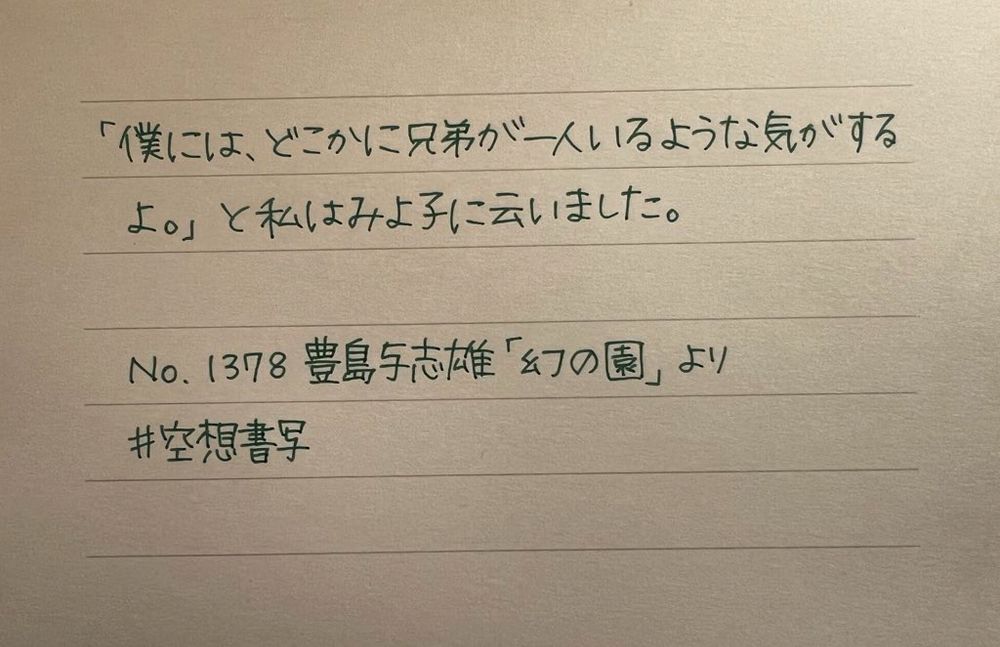 「僕には、どこかに兄弟が一人いるような気がする
よ。」と私はみよ子に云いました。
No. 1378 豊島与志雄「幻の園」より
#空想書写